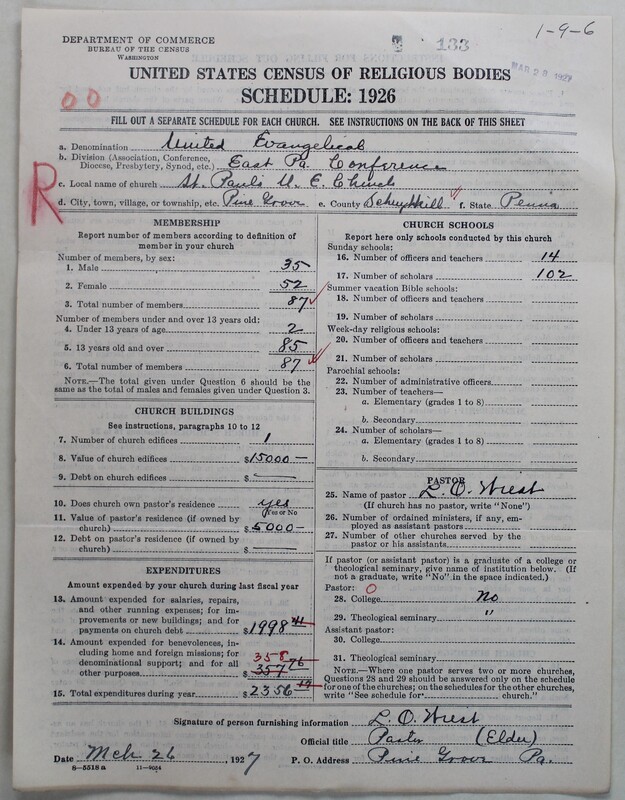 1-9-6
DEPARTMENT OF COMMERCE
BUREAU OF THE CENSUS
WASHINGTON
133
MAR 28 1927
UNITED STATES CENSUS OF RELIGIOUS BODIES
SCHEDULE: 1926
00
FILL OUT A SEPARATE SCHEDULE FOR EACH CHURCH. SEE INSTRUCTIONS ON THE BACK OF THIS SHEET
R
a. Denomination United Evangelical
b. Division (Association, Conference,
Diocese, Presbytery, Synod, etc.) East Pa. Conference
c. Local name of church St. Pauls U. E. Church
d. City, town, village, or township, etc. Pine Grove e. County Schuylkill f. State Penna
MEMBERSHIP
Report number of members according to definition of
member in your church
Number of members, by sex:
1. Male 35
2. Female 52
3. Total number of members 87
Number of members under and over 13 years old:
4. Under 13 years of age 2
5. 13 years old and over 85
6. Total number of members 87
NOTE.—The total given under Question 6 should be
the same as the total of males and females given under Question 3.
CHURCH BUILDINGS
See instructions, paragraphs 10 to 12
7. Number of church edifices 1
8. Value of church edifices $15000—
9. Debt on church edifices $ —
10. Does church own pastor's residence yes
Yes or No
11. Value of pastor's residence (if owned by
church) $5000—
12. Debt on pastor's residence (if owned by
church) $ —
EXPENDITURES
Amount expended by your church during last fiscal year
13. Amount expended for salaries, repairs,
and other running expenses; for im-
provements or new buildings; and for
payments on church debt $1998 41
14. Amount expended for benevolences, in-
cluding home and foreign missions; for
denominational support; and for all 358
other purposes $ 357 76
15. Total expenditures during year $2356
CHURCH SCHOOLS
Report here only schools conducted by this church
Sunday schools:
16. Number of officers and teachers 14
17. Number of scholars 102
Summer vacation Bible schools:
18. Number of officers and teachers
19. Number of scholars
Week-day religious schools:
20. Number of officers and teachers
21. Number of scholars
Parochial schools:
22. Number of administrative officers
23. Number of teachers—
a. Elementary (grades 1 to 8)
b. Secondary
24. Number of scholars—
a. Elementary (grades 1 to 8)
b. Secondary
PASTOR
25. Name of pastor L. O. Wiest
(If church has no pastor, write "None")
26. Number of ordained ministers, if any, em-
ployed as assistant pastors
27. Number of other churches served by the
pastor or his assistants
If pastor (or assistant pastor) is a graduate of a college or
theological seminary, give name of institution below. (If
not a graduate, write "No" in the space indicated.)
Pastor: 0
28. College No
29. Theological seminary "
Assistant pastor:
30. College
31. Theological seminary
NOTE.—Where one pastor serves two or more churches,
Questions 28 and 29 should be answered only on the schedule
for one of the churches; on the schedules for the other churches,
write "See schedule for church."
Signature of person furnishing information L. O. Wiest
Official title Pastor (Elder)
Date Mch 26, 1927 P. O. Address Pine Grove Pa.
8—5518a 11—9034